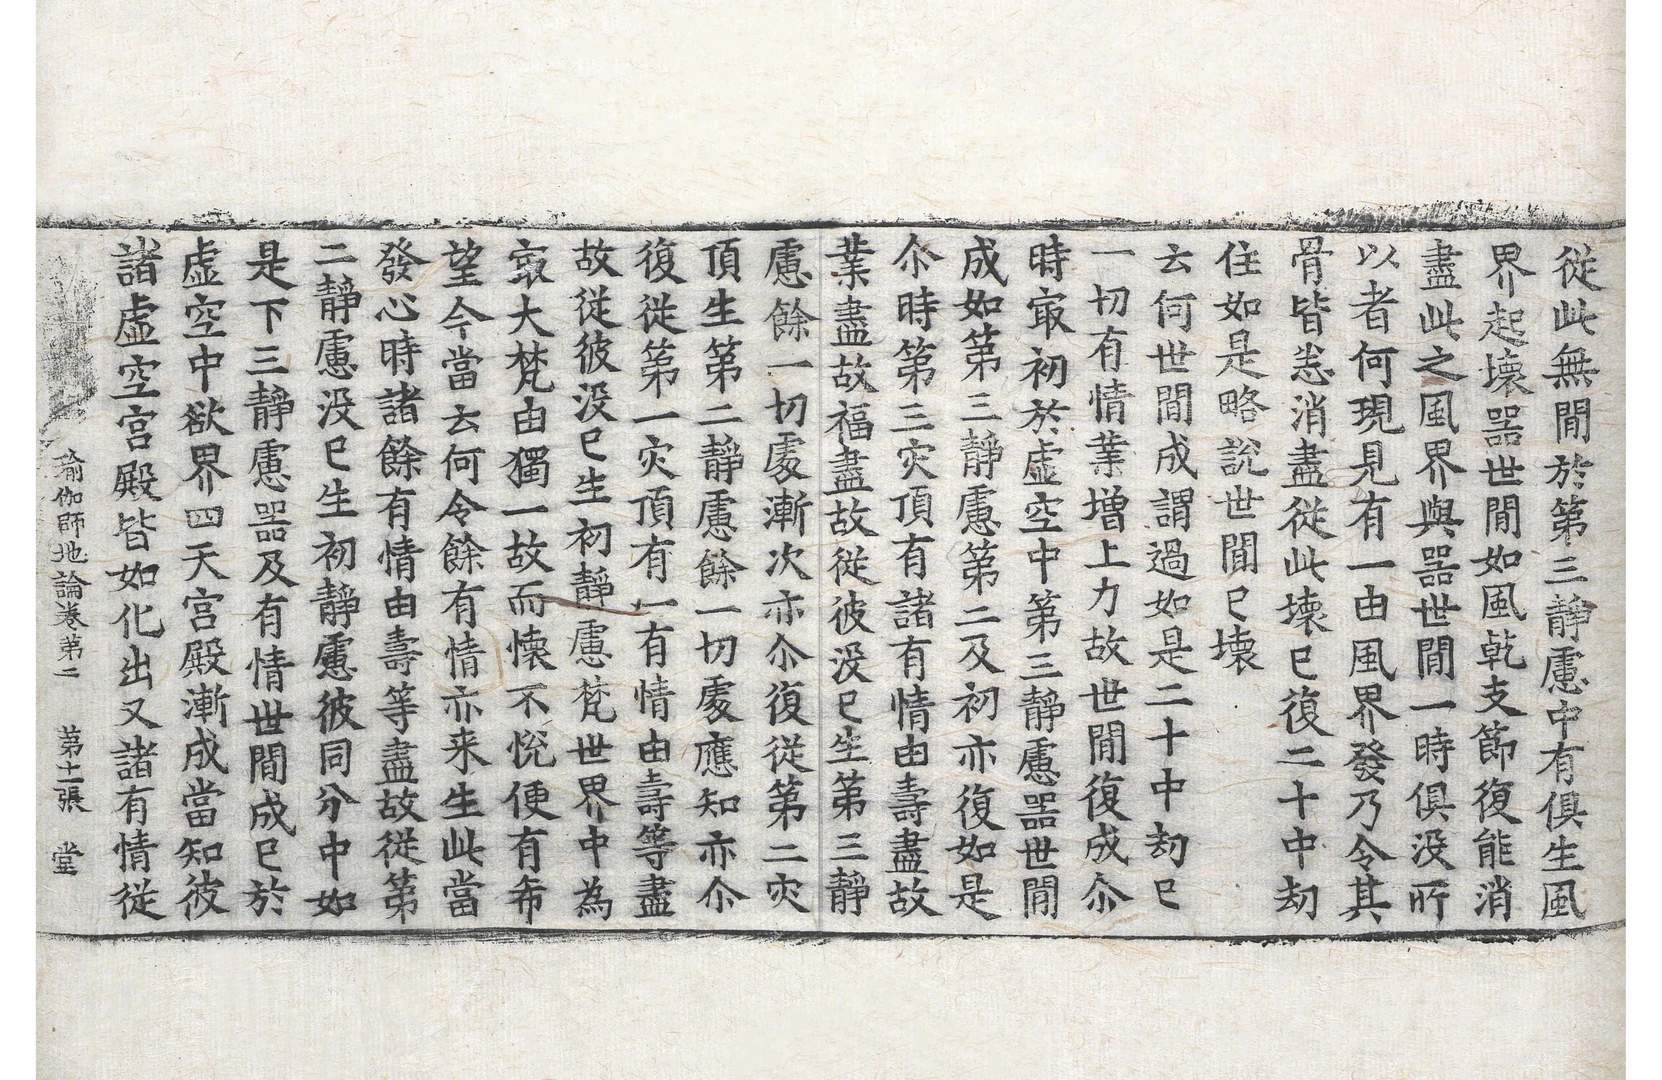 從此無間於第三靜慮中有俱生風
界起壞器世間如風乾支節復能消
盡此之風界與器世間一時俱没所
以者何現見有一由風界發乃令其
骨皆悉消盡從此壞已復二十中劫
住如是略說世間已壞
云何世間成謂過如是二十中劫已
一切有情業增上力故世間復成尒
時㝡初於虛空中第三靜慮器世間
成如第三靜慮第二及初亦復如是
尒時第三灾頂有諸有情由壽盡故
業盡故福盡故從彼没已生第三靜
慮餘一切處漸次亦尒復從第二灾
頂生第二靜慮餘一切處應知亦尒
復從第一灾頂有一有情由壽等盡
故從彼没已生初靜慮梵世界中為
㝡大梵由獨一故而懷不悅便有希
望今當云何令餘有情亦来生此當
發心時諸餘有情由壽等盡故從第
二靜慮没已生初靜慮彼同分中如
是下三靜慮器及有情世間成已於
虛空中欲界四天宮殿漸成當知彼
諸虛空宮殿皆如化出又諸有情從
瑜伽師地論卷第二 第十一張 堂